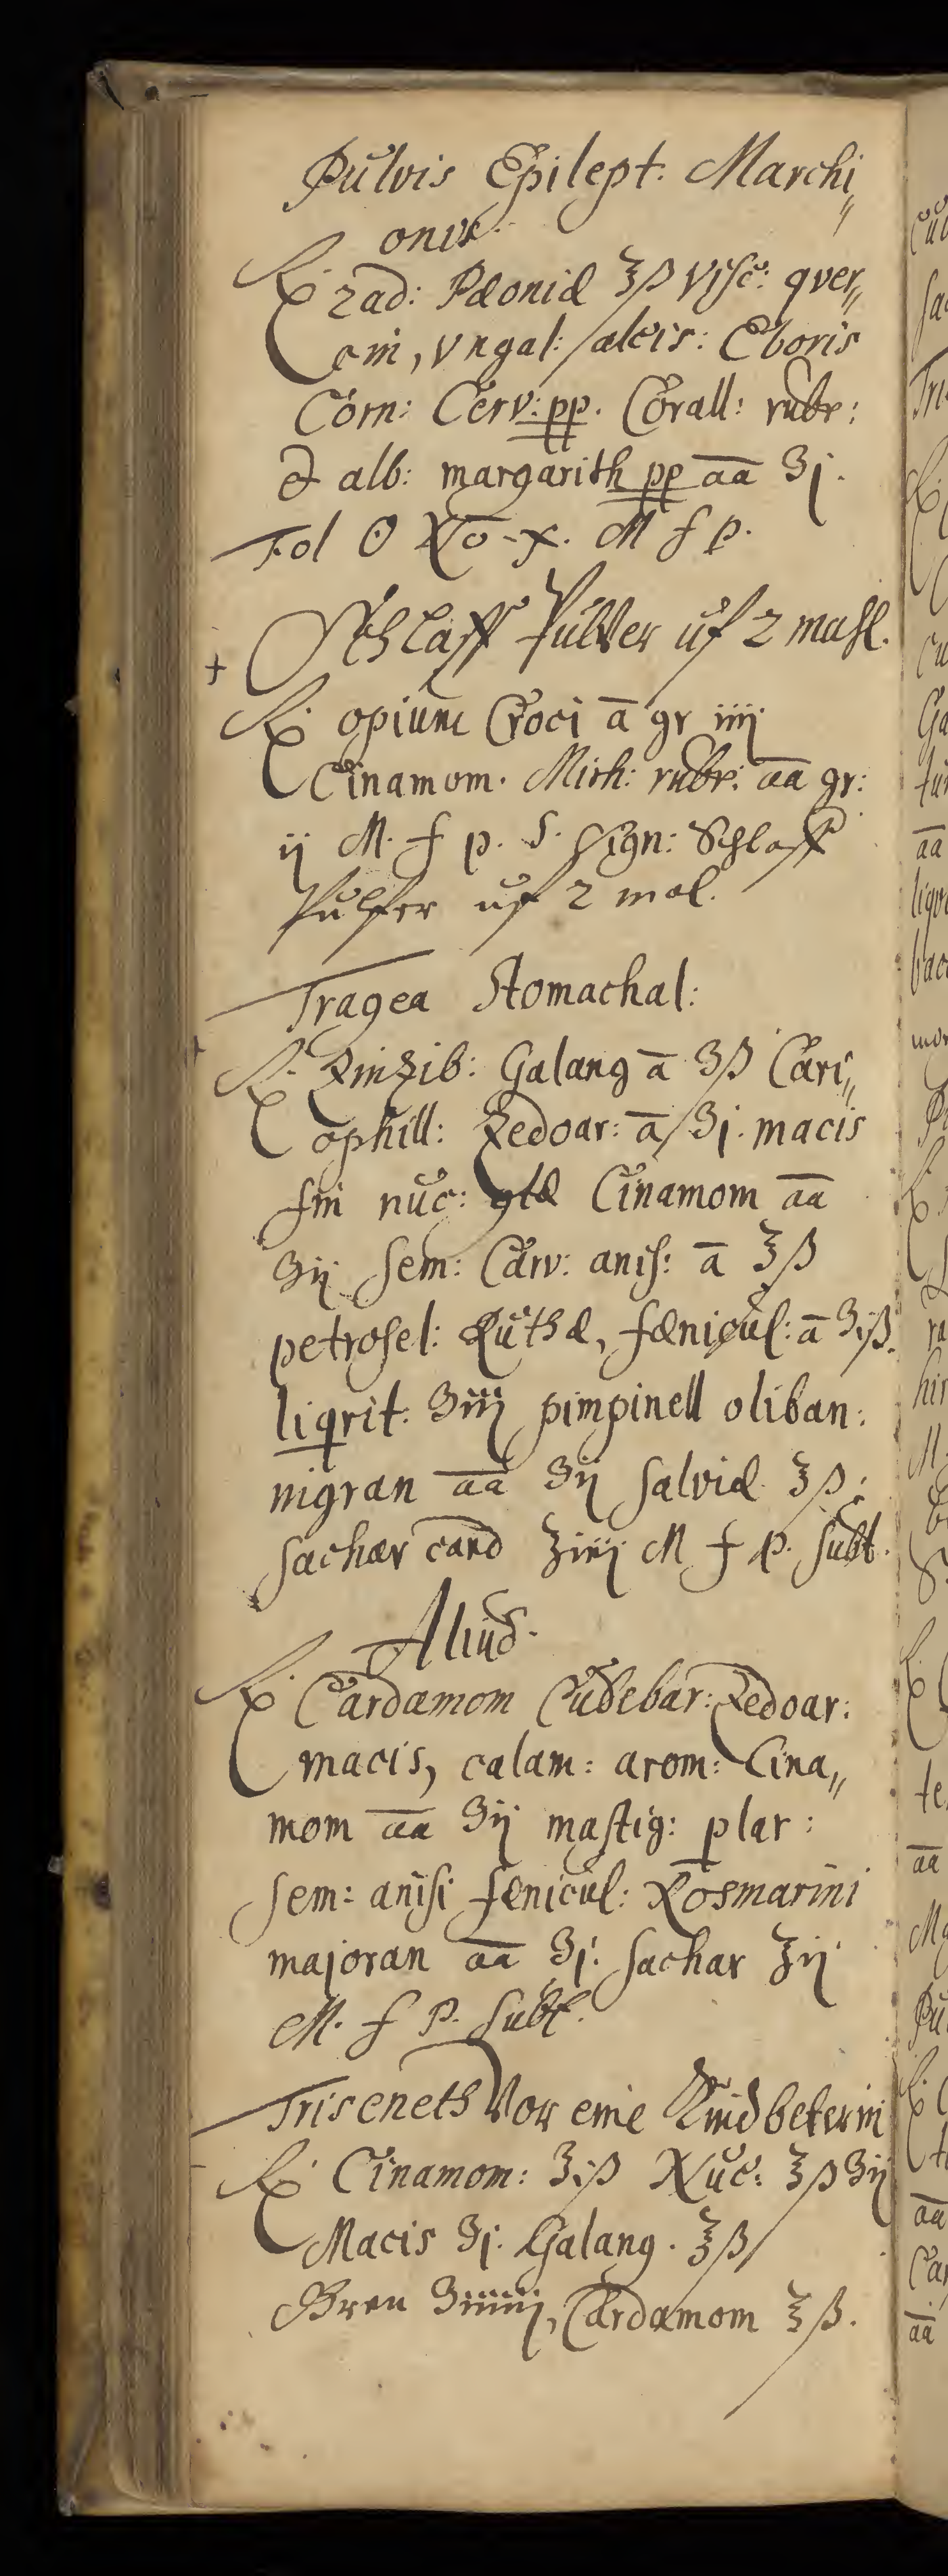 Pulvis Epilept: Marchi„
onis.
℞ Rad: Pæoniæ ʒß Visc: quer„
cini, Vngal: alcis: Eboris
Corn: Cerv: pp. Corall: rubr:
& alb: margarith pp aa ℈j.
Fol ☉ No. x. M f p.
Schlaff Pulver uf 2 mahl.
℞ opium Croci a gr iiij
Cinamom. Mirh: rubr: aa gr:
ij M. f p. S. Sign: Schlaff
Pulfer uf 2 mol.
Tragea Stomachal:
℞ Zinzib: Galang a ℈ß Cari„
ophill: Zedoar: a ℈j. macis
fin nuc: Cinamom aa
℈ij Sem: Carv: anis: a ʒß
petrosel: Ruthæ, fænicul: a ℈jß.
liqrit: ℈iij pimpinell oliban:
nigran aa ℈ij Salviæ ʒß:
Sachar cand ʒiiij M f p. subt.
Aliud.
℞ Cardamom Cubebar: Zedoar:
macis, calam: arom: Cina„
mom aa ℈ij mastig: plar:
Sem: anisi fænicul: Rosmarini
majoran aa ℈j. Sachar ʒij
M. f P. Subt.
Triseneth Vor eine Kindbeterin
℞ Cinamom: ʒiß Nuc: ʒß ℈ij
Macis ℈j. Galang. ʒß
Gren ℈iiiij, Cardamom ʒß.